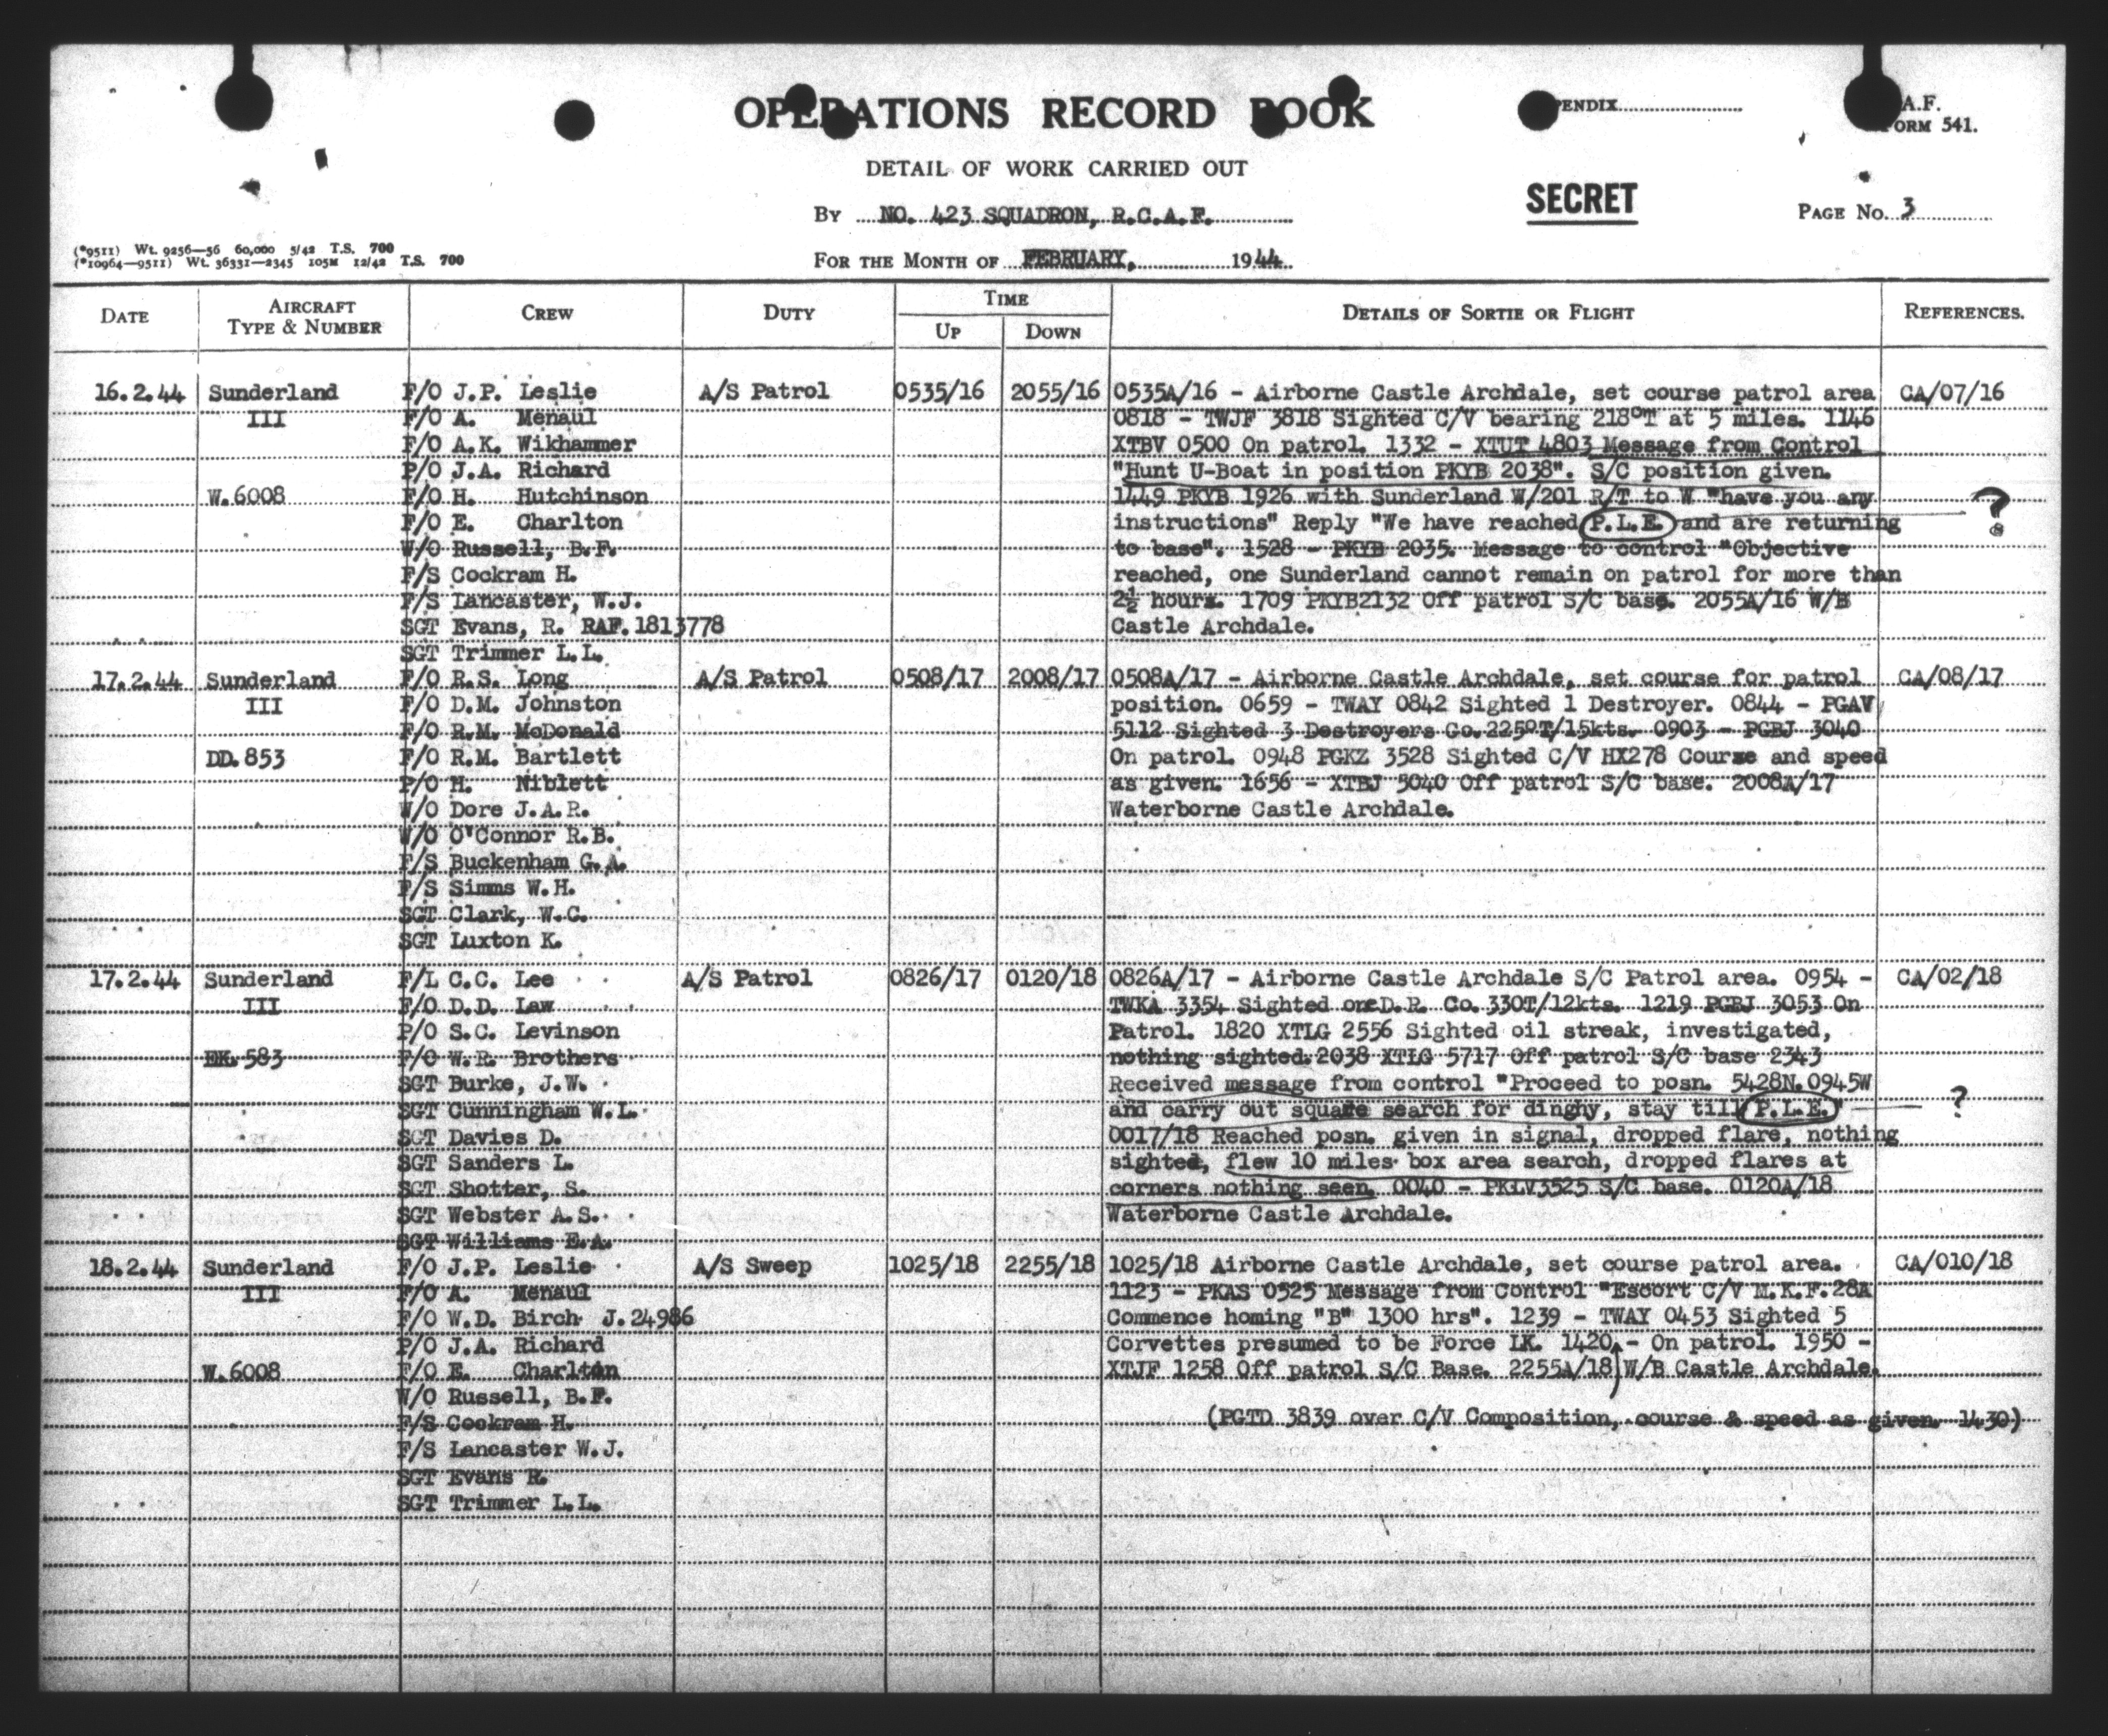 OPERATIONS RECORD BOOK
PENDIX
A.F.
ORM 541.
DETAIL OF WORK CARRIED OUT
SECRET
By NO. 423 SQUADRON, R.C.A.F.
PAGE No. 3
(*9511) Wt. 9256—56 60,000 5/42 T.S. 700
(*10964—9511) Wt. 36331—2345 105M 12/42 T.S. 700
FOR THE MONTH OF FEBRUARY, 1944
DATE AIRCRAFT TYPE & NUMBER CREW DUTY TIME UP DOWN DETAILS OF SORTIE OR FLIGHT REFERENCES.
16.2.44 Sunderland F/O J.P. Leslie A/S Patrol 0535/16 2055/16 0535A/16 - Airborne Castle Archdale, set course patrol area CA/07/16
III F/O A. Menaul 0818 - TWJF 3818 Sighted C/V bearing 218°T at 5 miles. 1146
F/O A.K. Wikhammer XTBV 0500 On patrol. 1332 - XTUT 4803 Message from Control
P/O J.A. Richard "Hunt U-Boat in position PKYB 2038". S/C position given.
W.6008 F/O H. Hutchinson 1449 PKYB 1926 with Sunderland W/201 R/T to W "have you any ?
F/O E. Charlton instructions" Reply "We have reached P.L.E. and are returning
W/O Russell, B.F. to base". 1528 - PKYB 2035. Message to control "Objective
F/S Cockram H. reached, one Sunderland cannot remain on patrol for more than
F/S Lancaster, W.J. 2½ hours. 1709 PKYB2132 Off patrol S/C base. 2055A/16 W/B
SGT Evans, R. RAF.1813778 Castle Archdale.
SGT Trimmer L.L.
17.2.44 Sunderland F/O R.S. Long A/S Patrol 0508/17 2008/17 0508A/17 - Airborne Castle Archdale, set course for patrol CA/08/17
III F/O D.M. Johnston position. 0659 - TWAY 0842 Sighted 1 Destroyer. 0844 - PGAV
F/O R.M. McDonald 5112 Sighted 3 Destroyers Co.225°T/15kts. 0903 - PGBJ 3040
DD.853 F/O R.M. Bartlett On patrol. 0948 PGKZ 3528 Sighted C/V HX278 Course and speed
P/O H. Niblett as given. 1656 - XTBJ 5040 Off patrol S/C base. 2008A/17
W/O Dore J.A.R. Waterborne Castle Archdale.
W/O O'Connor R.B.
F/S Buckenham G.A.
F/S Simms W.H.
SGT Clark, W.C.
SGT Luxton K.
17.2.44 Sunderland F/L C.C. Lee A/S Patrol 0826/17 0120/18 0826A/17 - Airborne Castle Archdale S/C Patrol area. 0954 - CA/02/18
III F/O D.D. Law TWKA 3354 Sighted one D.R. Co. 330T/12kts. 1219 PGBJ 3053 On
P/O S.C. Levinson Patrol. 1820 XTLG 2556 Sighted oil streak, investigated,
EK.583 F/O W.R. Brothers nothing sighted.2038 XTLG 5717 Off patrol S/C base 2343
SGT Burke, J.W. Received message from control "Proceed to posn. 5428N.0945W
SGT Cunningham W.L. and carry out square search for dinghy, stay till P.L.E." ?
SGT Davies D. 0017/18 Reached posn. given in signal, dropped flare, nothing
SGT Sanders L. sighted, flew 10 miles box area search, dropped flares at
SGT Shotter, S. corners nothing seen. 0040 - PKLV3525 S/C base. 0120A/18
SGT Webster A.S. Waterborne Castle Archdale.
SGT Williams E.A.
18.2.44 Sunderland F/O J.P. Leslie A/S Sweep 1025/18 2255/18 1025/18 Airborne Castle Archdale, set course patrol area. CA/010/18
III F/O A. Menaul 1123 - PKAS 0525 Message from Control "Escort C/V M.K.F.28A
F/O W.D. Birch J.24986 Commence homing "B" 1300 hrs". 1239 - TWAY 0453 Sighted 5
P/O J.A. Richard Corvettes presumed to be Force LK. 1420 - On patrol. 1950 -
W.6008 F/O E. Charlton XTJF 1258 Off patrol S/C Base. 2255A/18 W/B Castle Archdale.
W/O Russell, B.F.
F/S Cockram H. (PGTD 3839 over C/V Composition, course & speed as given. 1430)
F/S Lancaster W.J.
SGT Evans R.
SGT Trimmer L.L.